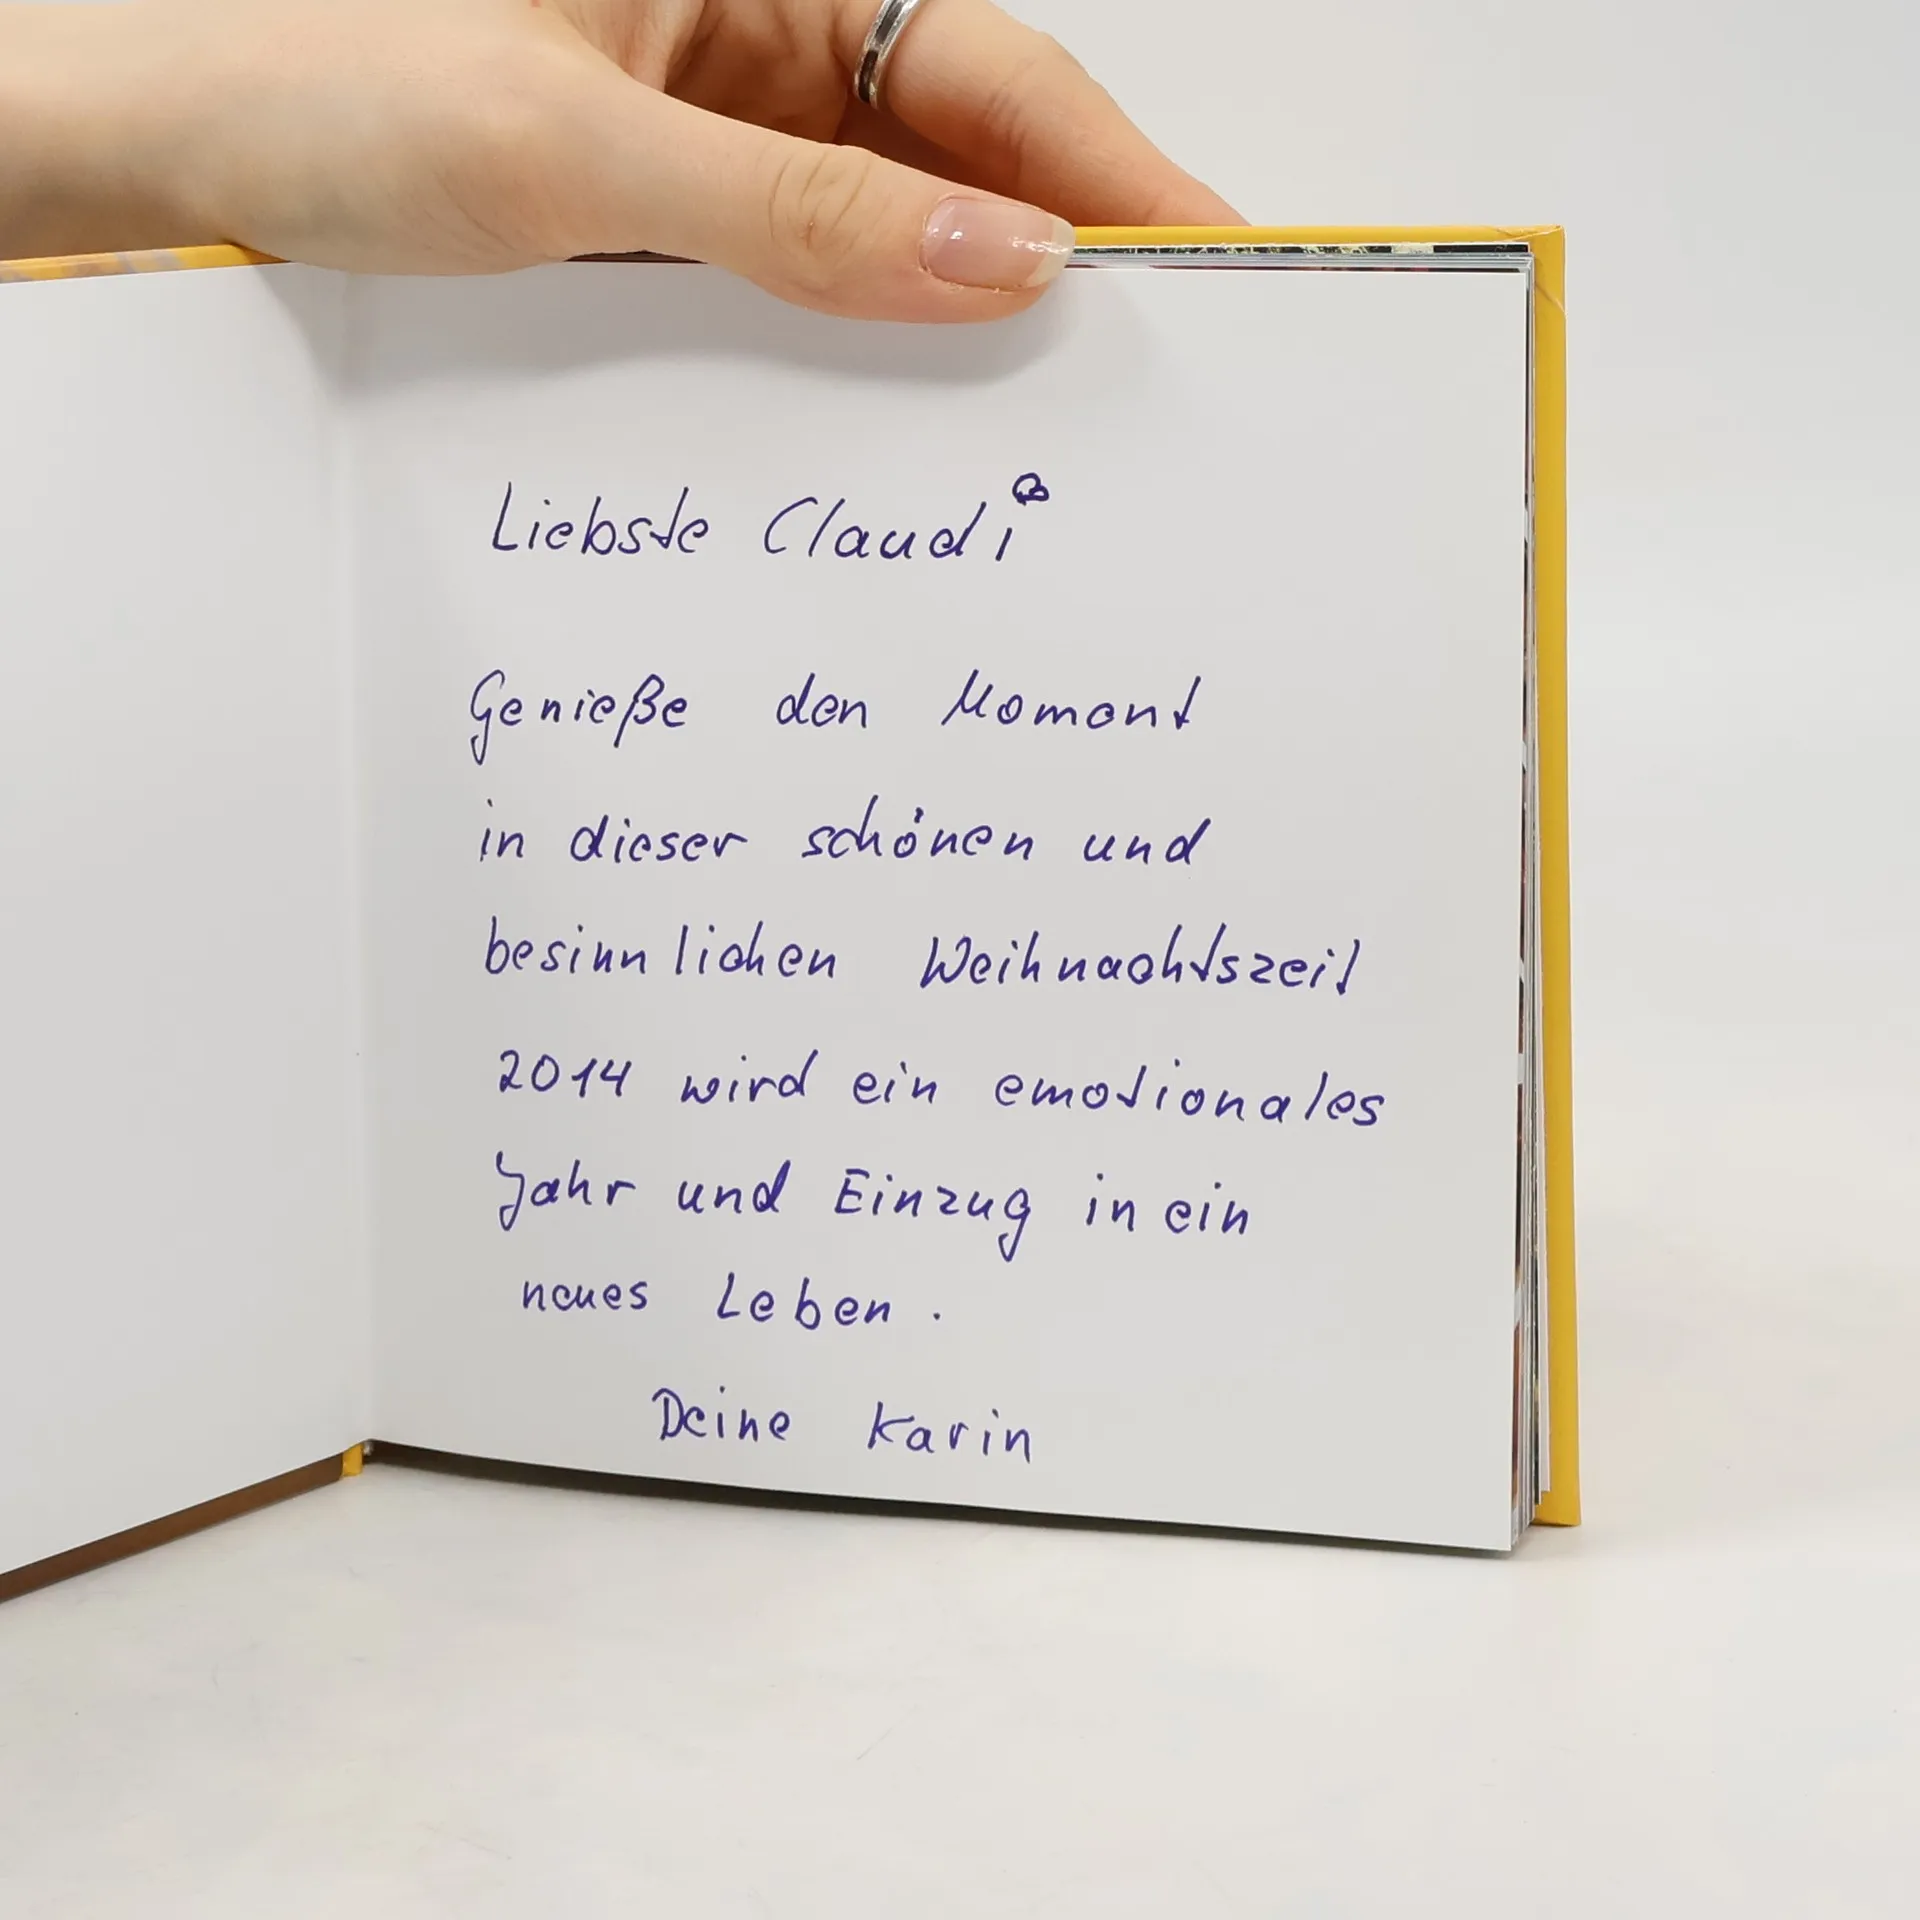 Liebste Claudi
Genieße den Moment
in dieser schönen und
besinnlichen Weihnachtszeit
2014 wird ein emotionales
Jahr und Einzug in ein
neues Leben.
Deine Karin